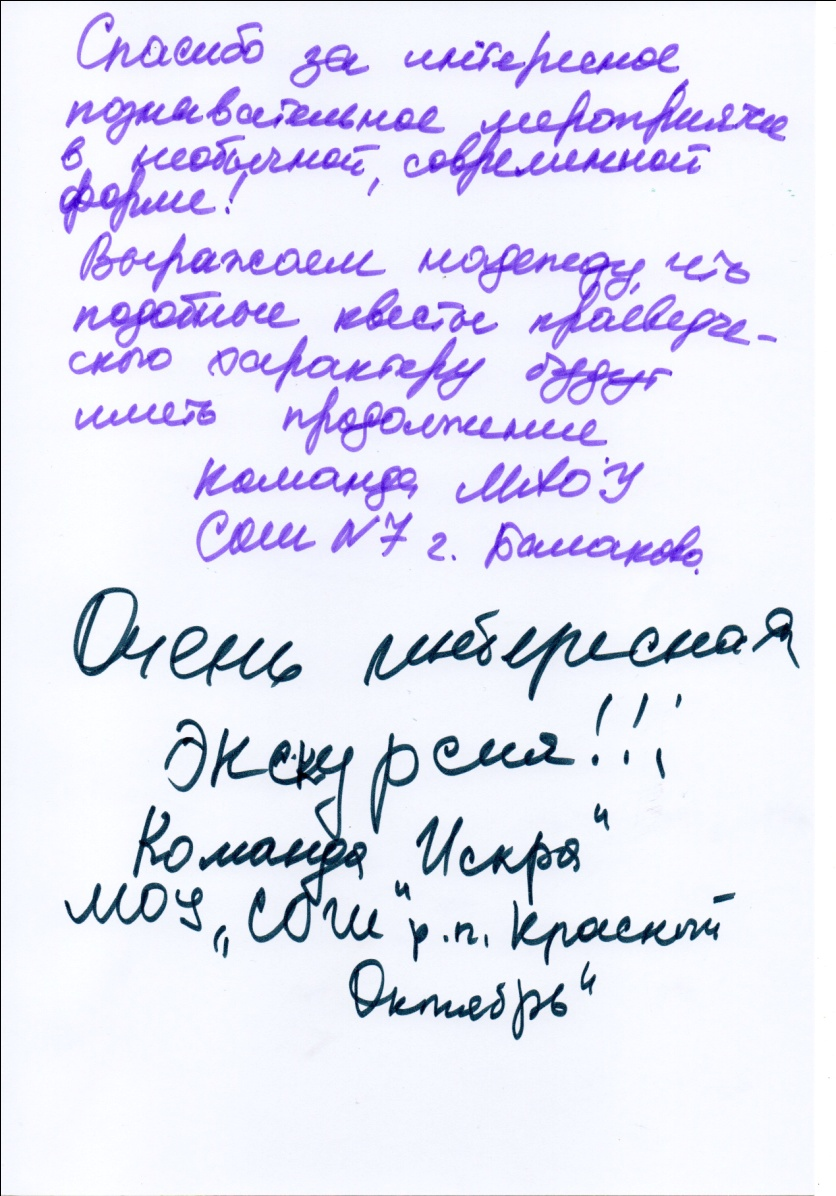 Спасибо за интересное,
познавательное мероприятие
в необычной, современной
форме!
Выражаем надежду, что
подобные квесты краеведче-
ского характеру будут
иметь продолжение
Команда МАОУ
СОШ №7 г. Балаково.
Очень интересная
экскурсия!!!
Команда „Искра“
МОУ „СОШ“ р.п. Красный
Октябрь“